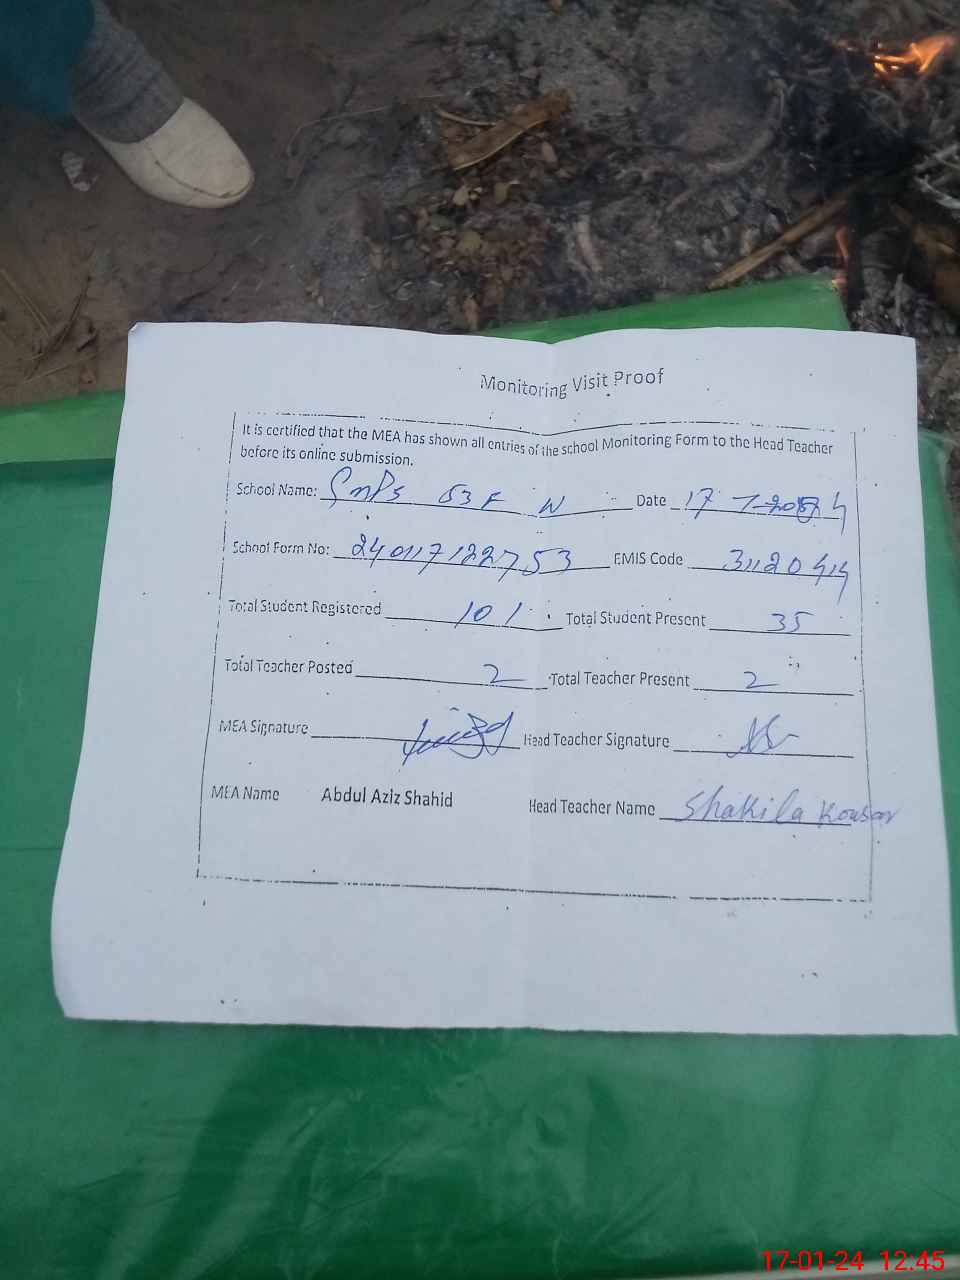 Monitoring Visit Proof
It is certified that the MEA has shown all entries of the school Monitoring Form to the Head Teacher
before its online submission.
School Name: GMPS 53 F W Date 17-1-2024
School Form No: 240117122753 EMIS Code 31120414
Total Student Registered 101 Total Student Present 35
Total Teacher Posted 2 Total Teacher Present 2
MEA Signature Head Teacher Signature
MEA Name Abdul Aziz Shahid Head Teacher Name Shakila Kousar
17-01-24 12:45